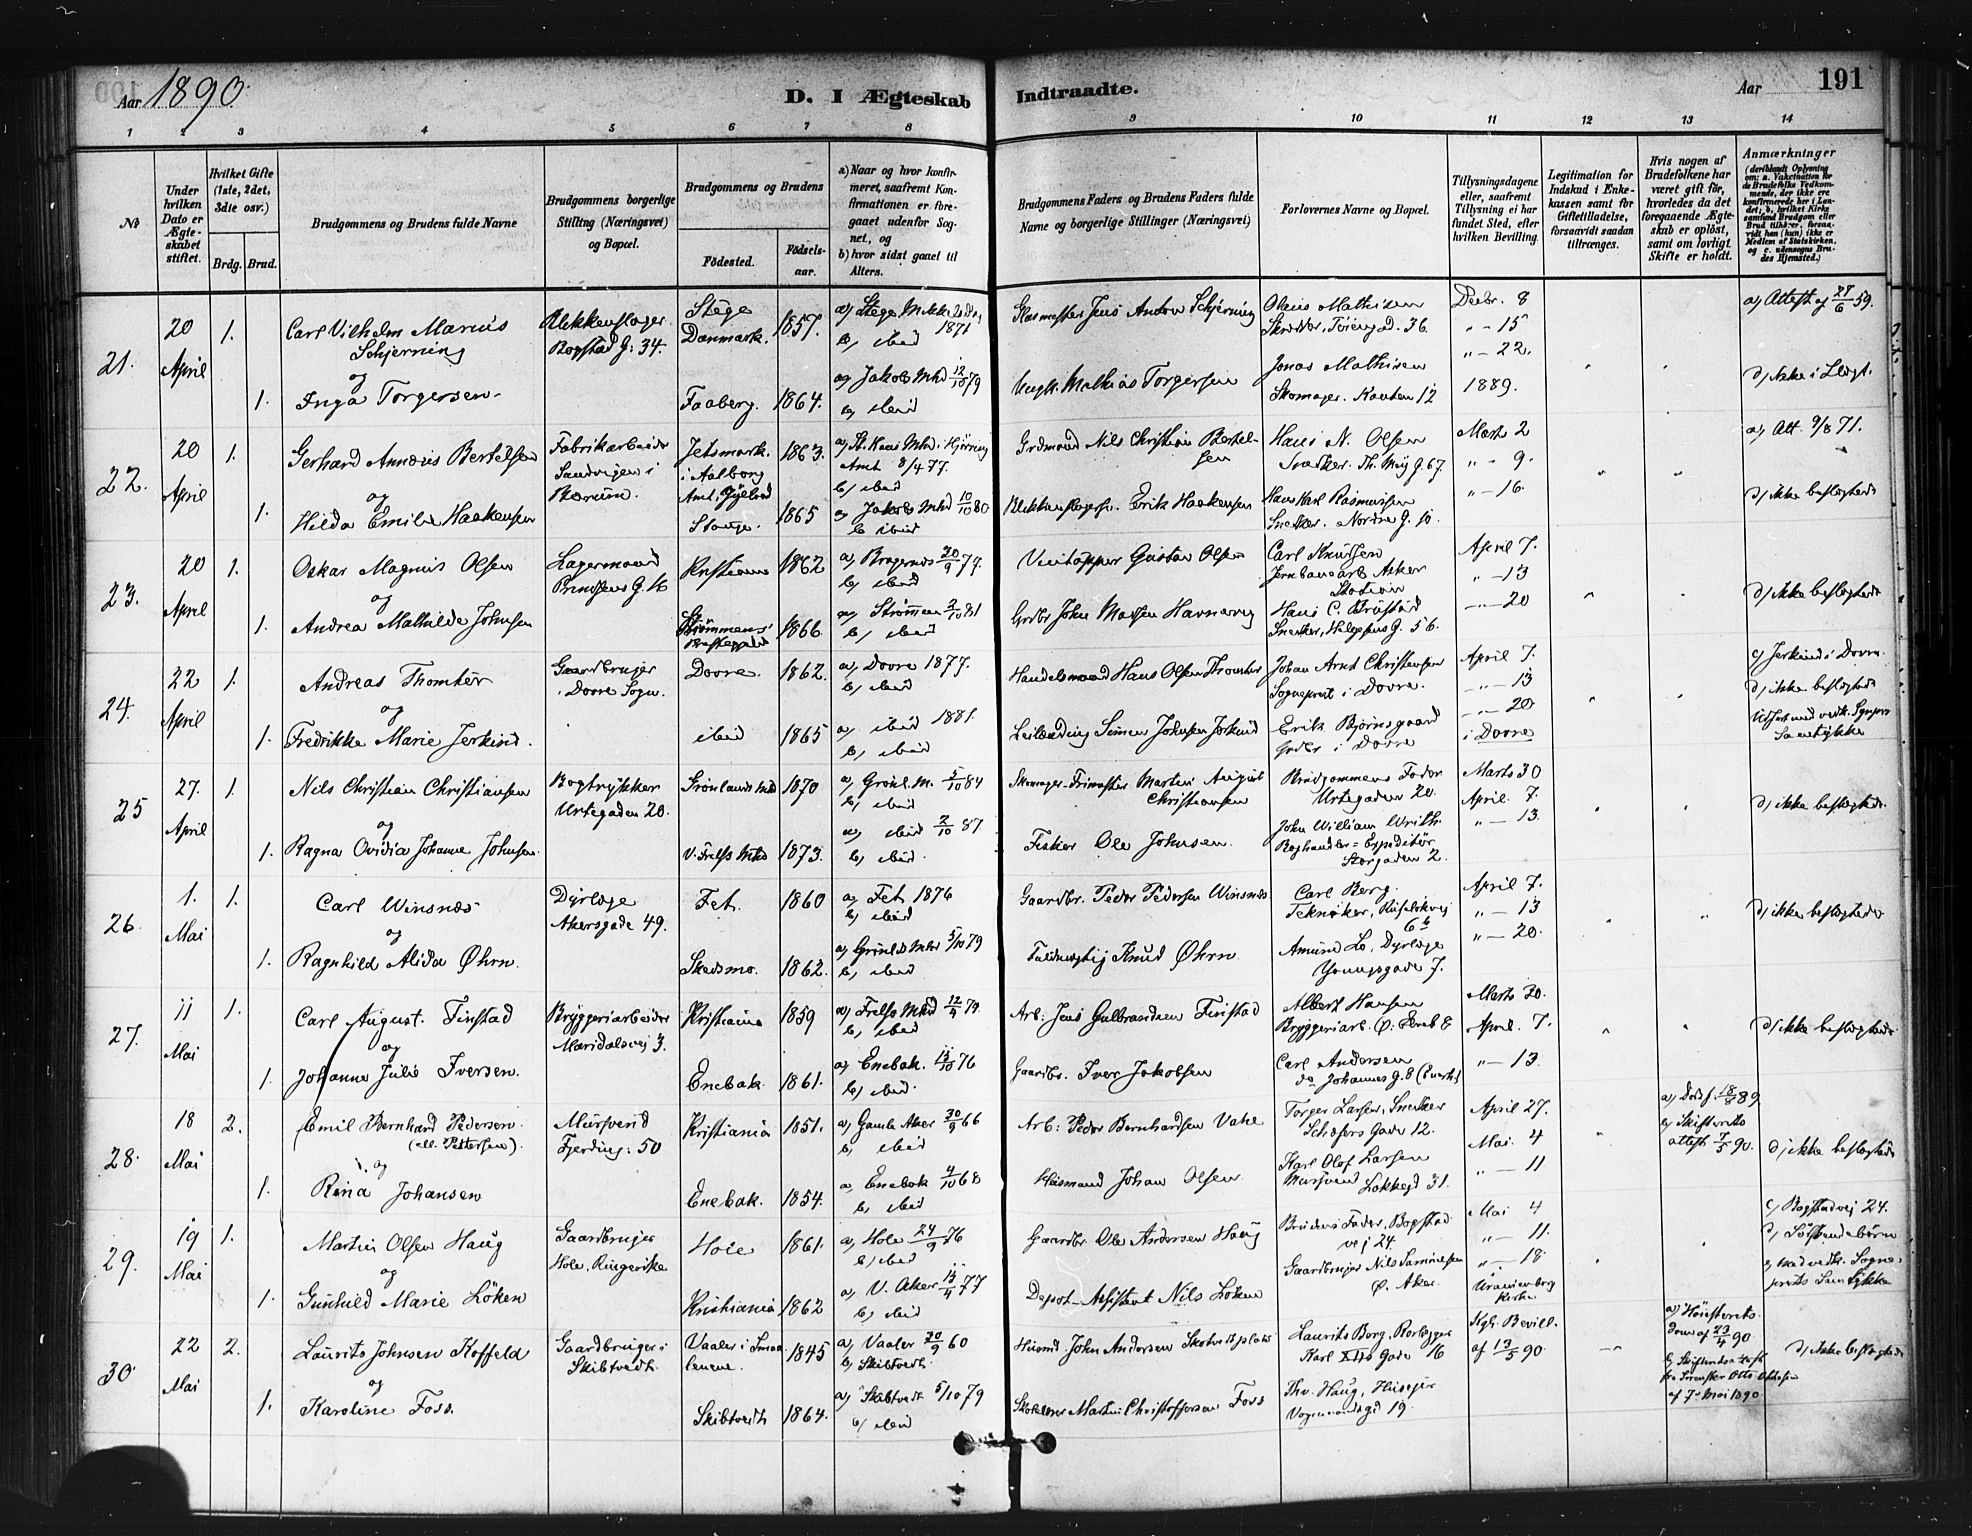 Aar 1890.
D. I Ægteskab Indtraadte.
Aar 191
1 2 3 4 5 6 7 8 9 10 11 12 13 14
No
Under hvilken Dato er Ægteskabet stiftet.
Hvilket Gifte (1ste, 2det, 3die osv.)
Brdg. Brud.
Brudgommens og Brudens fulde Navne
Brudgommens borgerlige Stilling (Næringsvei) og Bopæl.
Brudgommens og Brudens
Fødested. Fødselsaar.
a) Naar og hvor konfirmeret, saafremt Konfirmationen er foregaaet udenfor Sognet, og
b) hvor sidst gaaet til Alters.
Brudgommens Faders og Brudens Faders fulde Navne og borgerlige Stillinger (Næringsvei)
Forlovernes Navne og Bopæl.
Tillysningsdagene eller, saafremt Tillysning ei har fundet Sted, efter hvilken Bevilling.
Legitimation for Indskud i Enkekassen samt for Giftetilladelse, forsaavidt saadan tiltrænges.
Hvis nogen af Brudefolkene har været gift før, hvorledes da det foregaaende Ægteskab er opløst, samt om lovligt Skifte er holdt.
Anmærkninger
21. 20 April 1. Carl Vilhelm Marius Schjerning
Blikkenslager Bogstad G: 34.
Stege Danmark. 1857.
b) ibid
Glasmester Jens Anton Schjerning
Olaus Mathisen
Decbr. 8
" - 15
" - 22.
1889.
a) Attest af 28/6 59.
og
1. Inga Torgersen.
Faaberg. 1864.
a) Jakobs Mkd 12/10 79
b) ibid
Mathias Torgersen
Jonas Mathisen
Skomager.
22. 20 April 1. Gerhard Annæus Bertelsen
Fabrikarbeider Sandvigen i Bærum.
Jetsmark i Aalborg Amt, Jylland 1863.
Amt 8/4 77.
b) ibid
Grdmand Nils Christian Bertelsen
Hans N. Olsen
Snedker. Th. Mey G. 67
Marts 2
" - 9.
" - 16.
a) Att. 9/8 71.
og
1. Hilda Emilie Haakensen
Stange. 1865
a) Jakobs Mkd 10/10 80
b) ibid
Erik Haakensen
Hans Karl Rasmussen
Snedker. Nordre G. 10.
d) ikke beslægtede
23. 20 April 1. Oskar Magnus Olsen
Lagermand Prindsens G. 16
Kristiania 1862
a) Bragernes 30/9 77.
b) ibid
Gustav Olsen
Carl Knudsen
Asker Station
April 7.
" - 13
" - 20
og
1. Andrea Mathilde Johnsen
Strømmens 1866.
a) Strømmen 2/10 81
b) ibid
Grdbr John Madsen Havnevig
Hans C.
Snedker, G. 56.
d) ikke beslægtede
24. 22 April 1. Andreas Thomter
Gaardbruger i Dovre Sogn.
Dovre. 1862.
a) Dovre 1877.
b) ibid
Handelsmand Hans Olsen Thomter
Johan Arnt Christensen
Sogneprest i Dovre.
April 7.
" - 13
" - 20
i Dovre
c) Jerkind i Dovre.
d) ikke beslægtede
og
1. Fredrikke Marie Jerkind.
ibid 1865
a) ibid 1881.
b) ibid
Leilænding Simen Johnsen Jerkind
Erik Bjørnsgaard
Grdbr i Dovre
Samtykke
25 27. April 1. Nils Christian Christiansen
Bogtrykker Urtegaden 20.
Grønlands Mkd 1870
a) Grønl. M. 5/10 84
b) ibid
Skomager-Frimester Martin August Christiansen
Brudgommens Fader
Urtegaden 20.
Marts 30
April. 7.
" - 13.
og
1. Ragna Ovidia Johanne Johnsen.
V. Frelss Mkd 1873.
a) ibid 2/10 87.
b) ibid.
Fisker Ole Johnsen.
John William Writh.
Boghandler-Expeditør
Storgaden 2.
d) ikke beslægtede.
26. 1. Mai 1. Carl Winsnes
Dyrlæge Akersgade 49.
Fet. 1860
a) Fet 1876
b) ibid
Gaardbr. Peder Pedersen Winsnes
Carl Berg.
Tekniker,
April 7.
" - 13
" - 20.
og
1. Ragnhild Alida Øhrn.
Skedsmo. 1862.
a) Grønlds Mkd 5/10 79
b) ibid
Fuldmægtig Knud Øhrn
Amund Lo, Dyrlæge
Youngsgade 7.
d) ikke beslægtede
27. 11 Mai 1. Carl August Finstad
Bryggeriarbeider Maridalsvej 3.
Kristiania 1859
b) ibid
Arb: Jens Gulbrandsen Finstad
Albert Hansen
Marts 30.
April. 7.
" - 13.
og
1. Johanne Julie Iversen.
Enebak. 1861.
a) Enebak. 15/10 76
b) ibid.
Gaardbr. Iver Jakobsen
Carl Andersen
d) ikke beslægtede
28. 18 Mai 2. Emil Bernhard Pedersen. (ell. Pettersen).
Mursvend Fjerding: 50
Kristiania 1851.
a) Gamle Aker 30/9 66
b) ibid
Arb: Peder Bernhardsen Vahl
Torger Larsen, Snedker
Schæfers Gade 12.
April 27.
Mai. 4
" - 11
a) Dødsf. 18/8 89.
b) Skifterets attest 7/5 90.
og
1. Rina Johansen
Enebak. 1854.
a) Enebak 4/10 68
b) ibid
Husmand Johan Olsen
Karl Olof Larsen
Mursvend Løkkegd 31.
d) ikke beslægtede
29. 19 Mai 1. Martin Olsen Haug
Gaardbruger Hole, Ringerike
Hole 1861.
a) Hole 24/9 76
b) ibid
Gaardbr. Ole Andersen Haug
Brudens Fader, Bogstadvej 24.
Mai 4
" - 11.
" - 18.
Uranienborg Kirke
c) Bogstadvej 24.
d) Søskendebørn
e) med vedk. Sogneprests Samtykke
og
1. Gunhild Marie Löken
Kristiania 1862
a) V. Aker 15/4 77
b) ibid
Depot-Assistent Nils Löken
Gaardbruger Nils Samuelsen
Ø. Aker.
30. 22 Mai 2. Laurits Johnsen Koffeld
Gaardbruger i Skibtvedt.
Vaaler i Smaalenene. 1845
a) Vaaler 30/9 60
b) Skibtvedt.
Husmd John Andersen
Laurits Borg, Rørlægger
Karl XIIs Gade 16
Kgl. Bevill. af 13/5 90.
a) Høiesterets dom af 23/4 90
af 7 Mai 1890.
og
1. Karoline Foss.
Skibtvedt 1864.
a) Skibtvedt 5/10 79
b) ibid
Martin Christoffersen Foss
Thv. Haug, Huseier
Vognmandsgd 19.
d) ikke beslægtede